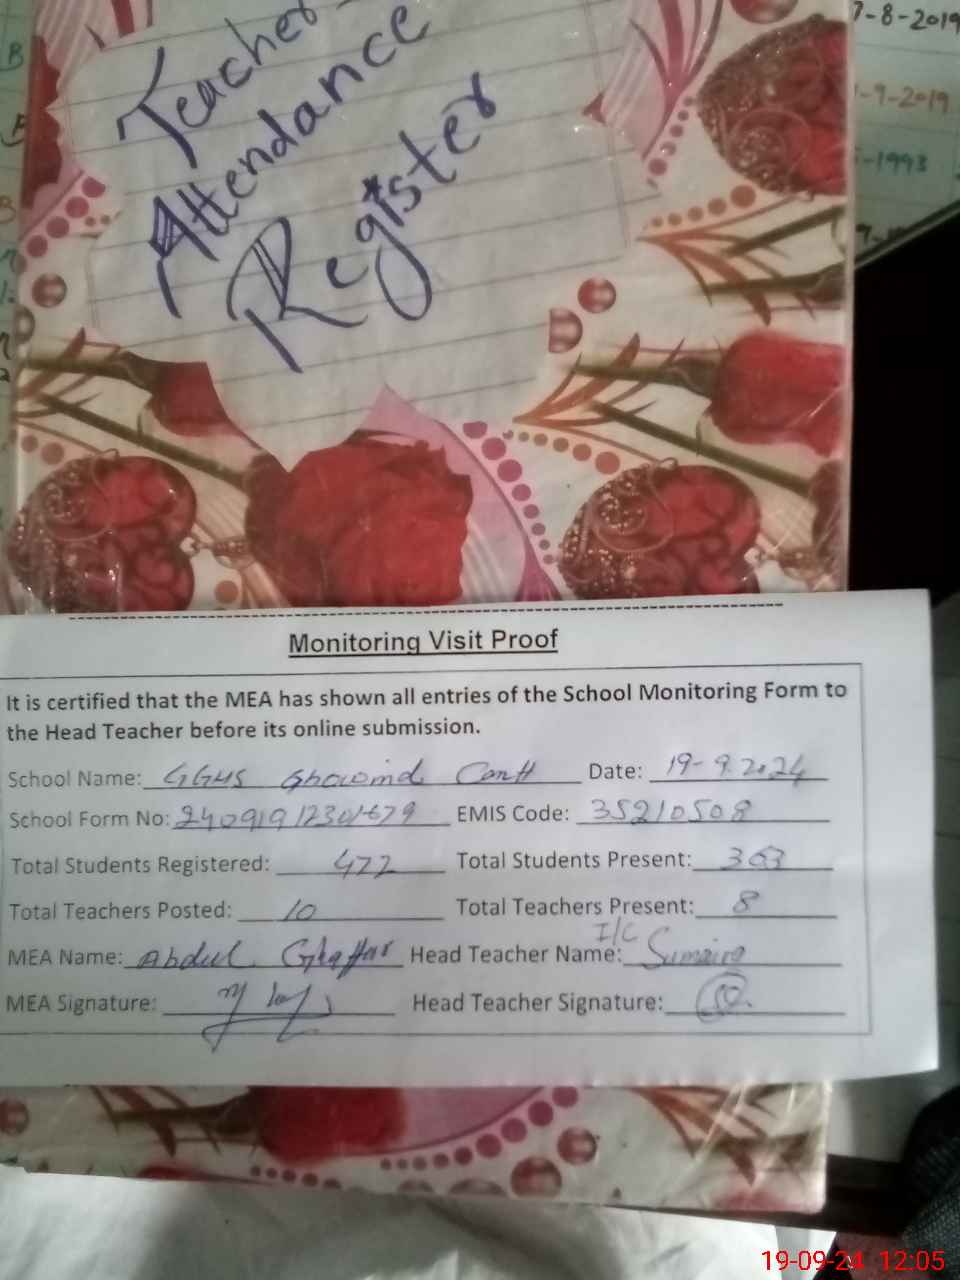 7-8-2019
-9-2019
-1993
Teacher
Attendance
Register
Monitoring Visit Proof
It is certified that the MEA has shown all entries of the School Monitoring Form to
the Head Teacher before its online submission.
School Name: GGHS Ghowind Cantt Date: 19-9.2024
School Form No: EMIS Code: 35210508
Total Students Registered: 472 Total Students Present: 363
Total Teachers Posted: 10 Total Teachers Present: 8
I/C
MEA Name: Abdul Ghaffar Head Teacher Name: Sumaira
MEA Signature: Head Teacher Signature:
19-09-24 12:05